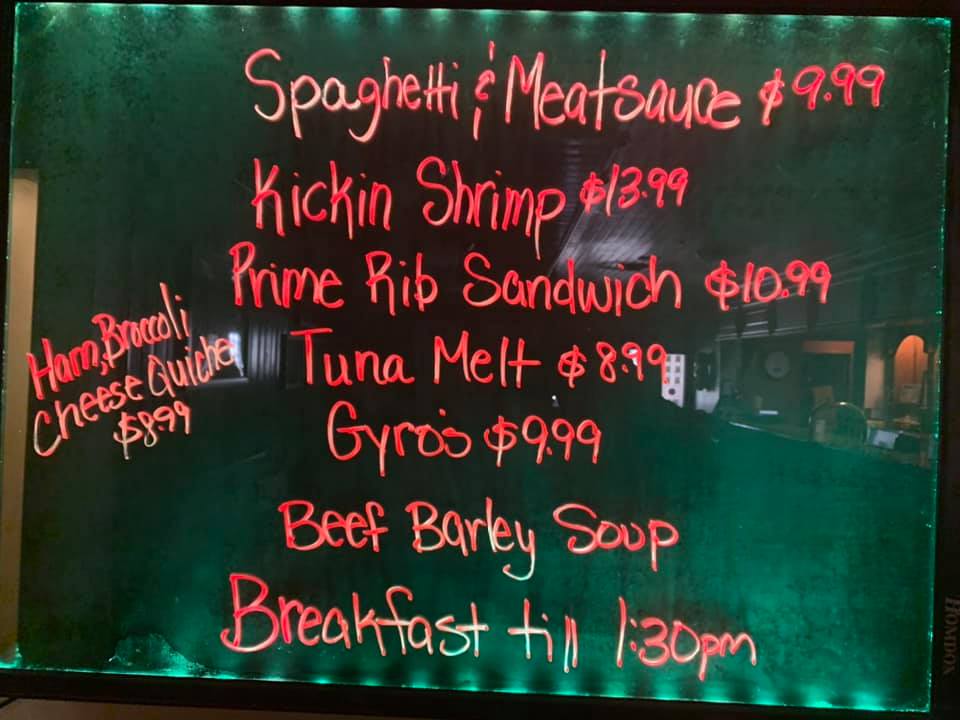 Spaghetti & Meatsauce $9.99
Kickin Shrimp $13.99
Prime Rib Sandwich $10.99
Ham, Broccoli
Cheese Quiche
$8.99
Tuna Melt $8.99
Gyro's $9.99
Beef Barley Soup
Breakfast till 1:30pm
HOMDOX